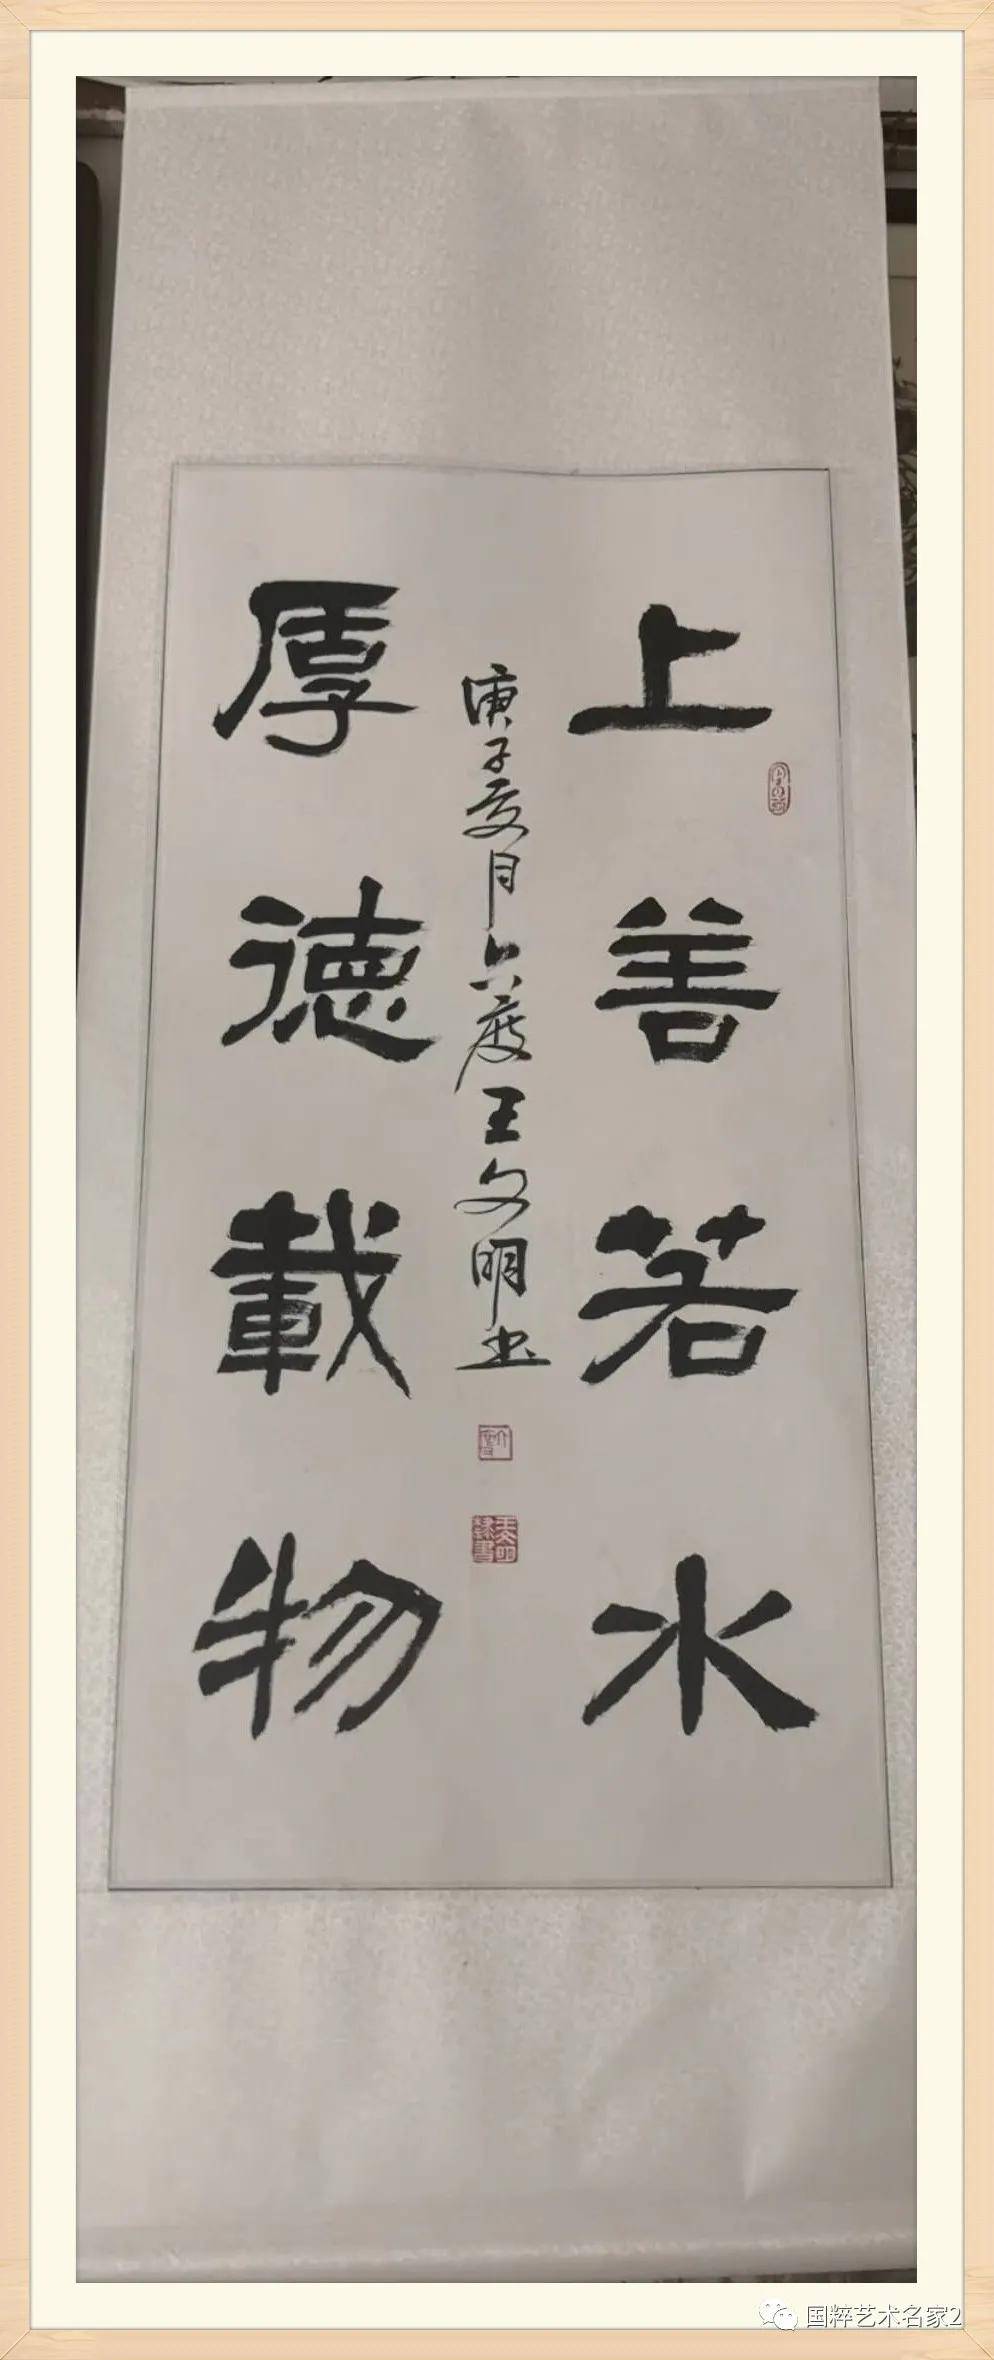 上善若水
厚德載物
庚子夏月六度王文明书
王文明隸書
国粹艺术名家2